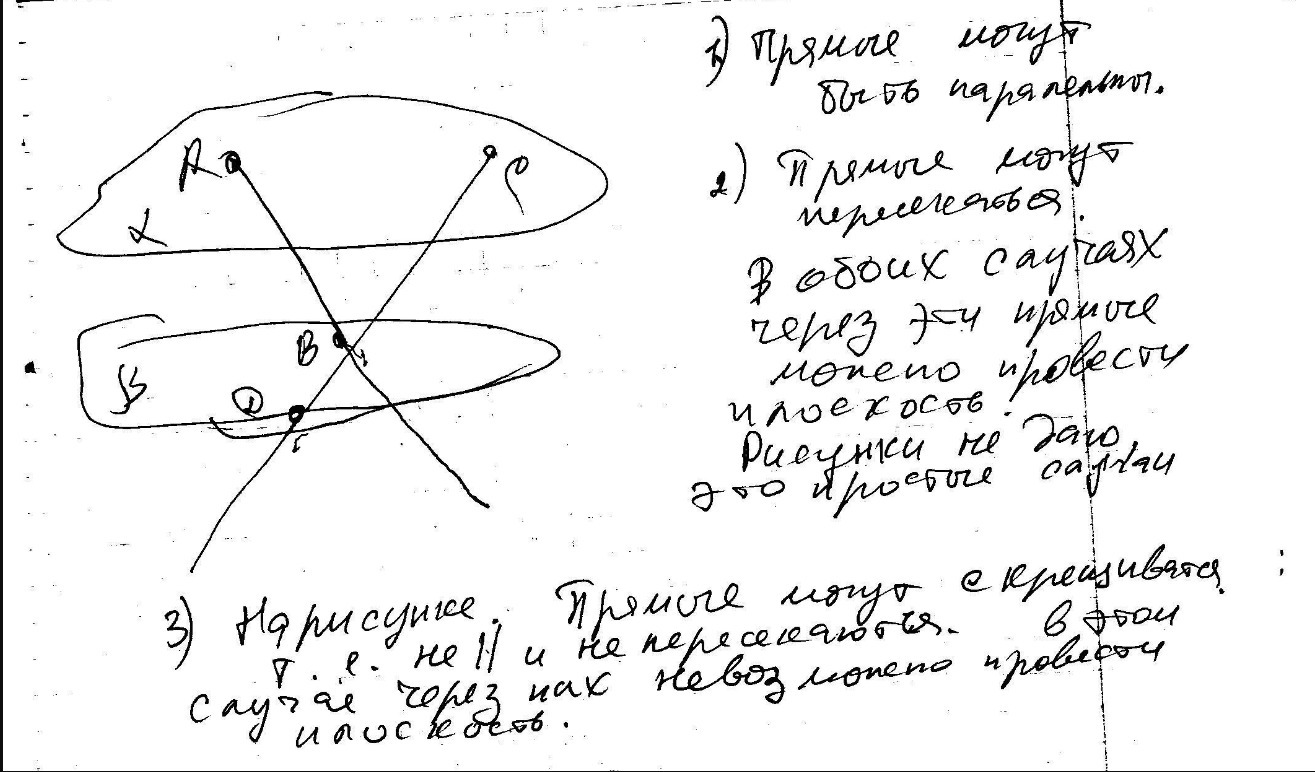 1) Прямые могут
быть паралельны.
2) Прямые могут
пересекаться.
В обоих случаях
через эти прямые
можно провести
плоскость.
Рисунки не даю,
это простые случаи
A
C
α
B
β
D
3) На рисунке. Прямые могут скрещиватся :
т. е. не || и не пересекаются. в этом
случае через них невозможно провести
плоскость.